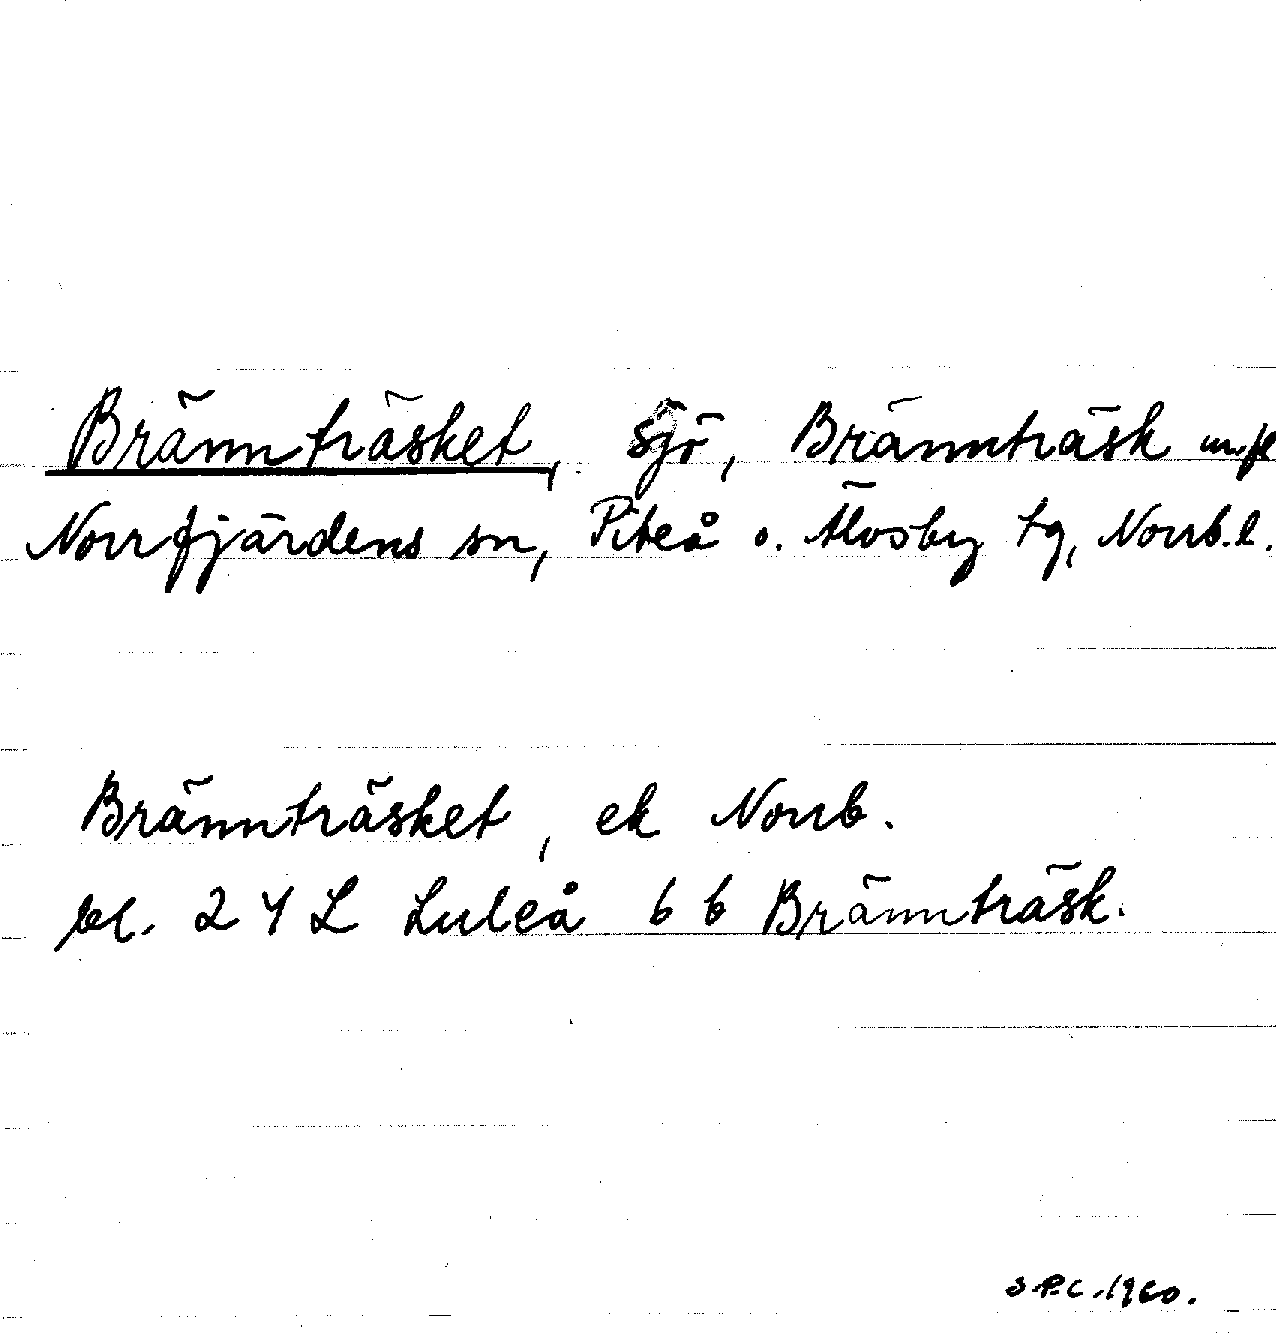 Brännträsket, sjö, Brännträsk m.fl
Norrfjärdens sn, Piteå o. Älvsby tg, Norrb.l.
Brännträsket, ek Norrb.
bl. 24 L Luleå 6 b Brännträsk.
S.P.C. 1960.